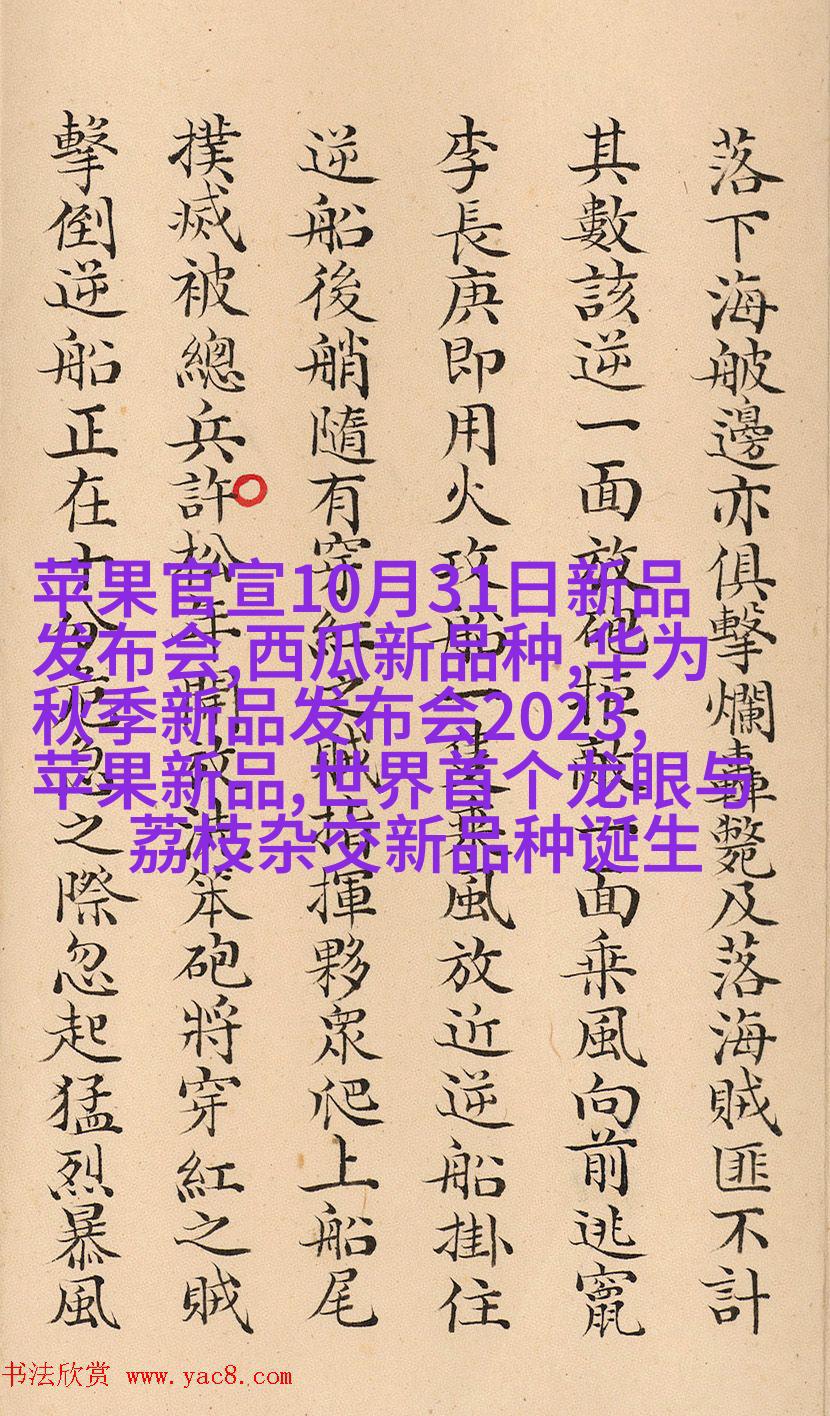 落下海舭邊亦俱擊爛轟斃及落海賊匪不計
其數該逆一面放砲拒敵一面乘風向前逃竄
李長庚即用火攻船一隻乘風放近逆船掛住
逆船後艄隨有穿紅之賊指揮夥眾爬上船尾
撲滅被總兵許松年開放法笨砲將穿紅之賊
擊倒逆船正在十分危急之際忽起猛烈暴風
苹果官宣10月31日新品
发布会,西瓜新品种,华为
秋季新品发布会2023,
苹果新品,世界首个龙眼与
荔枝杂交新品种诞生
书法欣赏 www.yac8.com